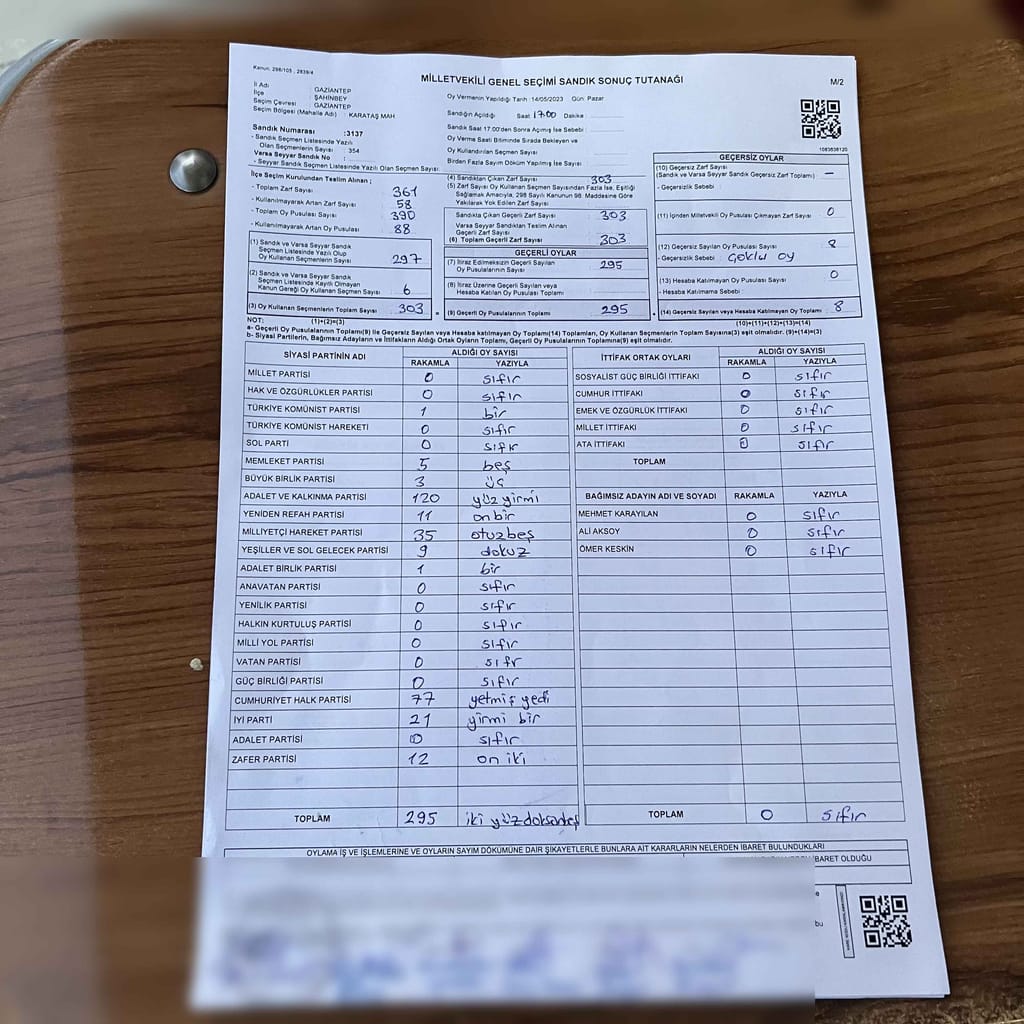 Kanun: 298/105 ; 2839/4
MİLLETVEKİLİ GENEL SEÇİMİ SANDIK SONUÇ TUTANAĞI
M/2
İl Adı : GAZİANTEP
İlçe : ŞAHİNBEY
Seçim Çevresi : GAZİANTEP
Seçim Bölgesi (Mahalle Adı) : KARATAŞ MAH
Sandık Numarası :3137
- Sandık Seçmen Listesinde Yazılı
Olan Seçmenlerin Sayısı : 354
Varsa Seyyar Sandık No :
- Seyyar Sandık Seçmen Listesinde Yazılı Olan Seçmen Sayısı:
Oy Vermenin Yapıldığı Tarih :14/05/2023 Gün: Pazar
Sandığın Açıldığı Saat 17:00 Dakika :
Sandık Saat 17.00'den Sonra Açımış İse Sebebi :
Oy Verme Saati Bitiminde Sırada Bekleyen ve
Oy Kullandırılan Seçmen Sayısı :
Birden Fazla Sayım Döküm Yapılmış İse Sayısı :
1083838120
İlçe Seçim Kurulundan Teslim Alınan ;
- Toplam Zarf Sayısı : 361
- Kullanılmayarak Artan Zarf Sayısı : 58
- Toplam Oy Pusulası Sayısı : 390
- Kullanılmayarak Artan Oy Pusulası : 88
(1) Sandık ve Varsa Seyyar Sandık
Seçmen Listesinde Yazılı Olup
Oy Kullanan Seçmenlerin Sayısı : 297
(2) Sandık ve Varsa Seyyar Sandık
Seçmen Listesinde Kayıtlı Olmayan
Kanun Gereği Oy Kullanan Seçmen Sayısı : 6
(3) Oy Kullanan Seçmenlerin Toplam Sayısı : 303
(4) Sandıktan Çıkan Zarf Sayısı : 303
(5) Zarf Sayısı Oy Kullanan Seçmen Sayısından Fazla İse, Eşitliği
Sağlamak Amacıyla, 298 Sayılı Kanunun 98. Maddesine Göre
Yakılarak Yok Edilen Zarf Sayısı :
Sandıkta Çıkan Geçerli Zarf Sayısı : 303
Varsa Seyyar Sandıktan Teslim Alınan
Geçerli Zarf Sayısı :
(6) Toplam Geçerli Zarf Sayısı : 303
GEÇERLİ OYLAR
(7) İtiraz Edilmeksizin Geçerli Sayılan
Oy Pusulalarının Sayısı : 295
(8) İtiraz Üzerine Geçerli Sayılan veya
Hesaba Katılan Oy Pusulası Toplamı :
= (9) Geçerli Oy Pusulalarının Toplamı : 295
GEÇERSİZ OYLAR
(10) Geçersiz Zarf Sayısı
(Sandık ve Varsa Seyyar Sandık Geçersiz Zarf Toplamı) : —
- Geçersizlik Sebebi :
(11) İçinden Milletvekili Oy Pusulası Çıkmayan Zarf Sayısı : 0
(12) Geçersiz Sayılan Oy Pusulası Sayısı : 8
- Geçersizlik Sebebi : Çoklu oy
(13) Hesaba Katılmayan Oy Pusulası Sayısı : 0
- Hesaba Katılmama Sebebi :
+ (14) Geçersiz Sayılan veya Hesaba Katılmayan Oy Toplamı : 8
NOT: (1)+(2)=(3)
(10)+(11)+(12)+(13)=(14)
a- Geçerli Oy Pusulalarının Toplamı(9) ile Geçersiz Sayılan veya Hesaba katılmayan Oy Toplamı(14) Toplamları, Oy Kullanan Seçmenlerin Toplam Sayısına(3) eşit olmalıdır. (9)+(14)=(3)
b- Siyasi Partilerin, Bağımsız Adayların ve İttifakların Aldığı Ortak Oyların Toplamı, Geçerli Oy Pusulalarının Toplamına(9) eşit olmalıdır.
SİYASİ PARTİNİN ADI ALDIĞI OY SAYISI
RAKAMLA YAZIYLA
MİLLET PARTİSİ 0 sıfır
HAK VE ÖZGÜRLÜKLER PARTİSİ 0 sıfır
TÜRKİYE KOMÜNİST PARTİSİ 1 bir
TÜRKİYE KOMÜNİST HAREKETİ 0 sıfır
SOL PARTİ 0 sıfır
MEMLEKET PARTİSİ 5 beş
BÜYÜK BİRLİK PARTİSİ 3 üç
ADALET VE KALKINMA PARTİSİ 120 yüz yirmi
YENİDEN REFAH PARTİSİ 11 on bir
MİLLİYETÇİ HAREKET PARTİSİ 35 otuz beş
YEŞİLLER VE SOL GELECEK PARTİSİ 9 dokuz
ADALET BİRLİK PARTİSİ 1 bir
ANAVATAN PARTİSİ 0 sıfır
YENİLİK PARTİSİ 0 sıfır
HALKIN KURTULUŞ PARTİSİ 0 sıfır
MİLLİ YOL PARTİSİ 0 sıfır
VATAN PARTİSİ 0 sıfr
GÜÇ BİRLİĞİ PARTİSİ 0 sıfır
CUMHURİYET HALK PARTİSİ 77 yetmiş yedi
İYİ PARTİ 21 yirmi bir
ADALET PARTİSİ 0 sıfır
ZAFER PARTİSİ 12 on iki
TOPLAM 295 iki yüz doksanbeş
İTTİFAK ORTAK OYLARI ALDIĞI OY SAYISI
RAKAMLA YAZIYLA
SOSYALİST GÜÇ BİRLİĞİ İTTİFAKI 0 sıfır
CUMHUR İTTİFAKI 0 sıfır
EMEK VE ÖZGÜRLÜK İTTİFAKI 0 sıfır
MİLLET İTTİFAKI 0 sıfır
ATA İTTİFAKI 0 sıfır
TOPLAM
BAĞIMSIZ ADAYIN ADI VE SOYADI RAKAMLA YAZIYLA
MEHMET KARAYILAN 0 sıfır
ALİ AKSOY 0 sıfır
ÖMER KESKİN 0 sıfır
TOPLAM 0 sıfır
OYLAMA İŞ VE İŞLEMLERİNE VE OYLARIN SAYIM DÖKÜMÜNE DAİR ŞİKAYETLERLE BUNLARA AİT KARARLARIN NELERDEN İBARET BULUNDUKLARI
İBARET OLDUĞU